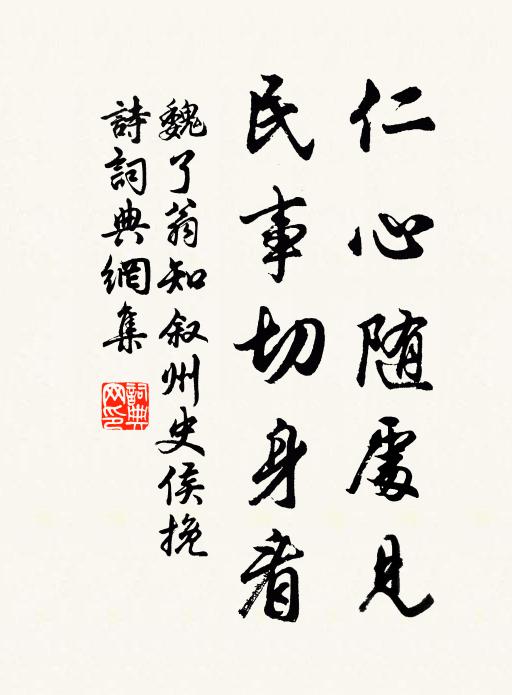 仁心随處見
民事切身看
魏了翁知叙州史侯挽
詩詞典網集
詞典
网印